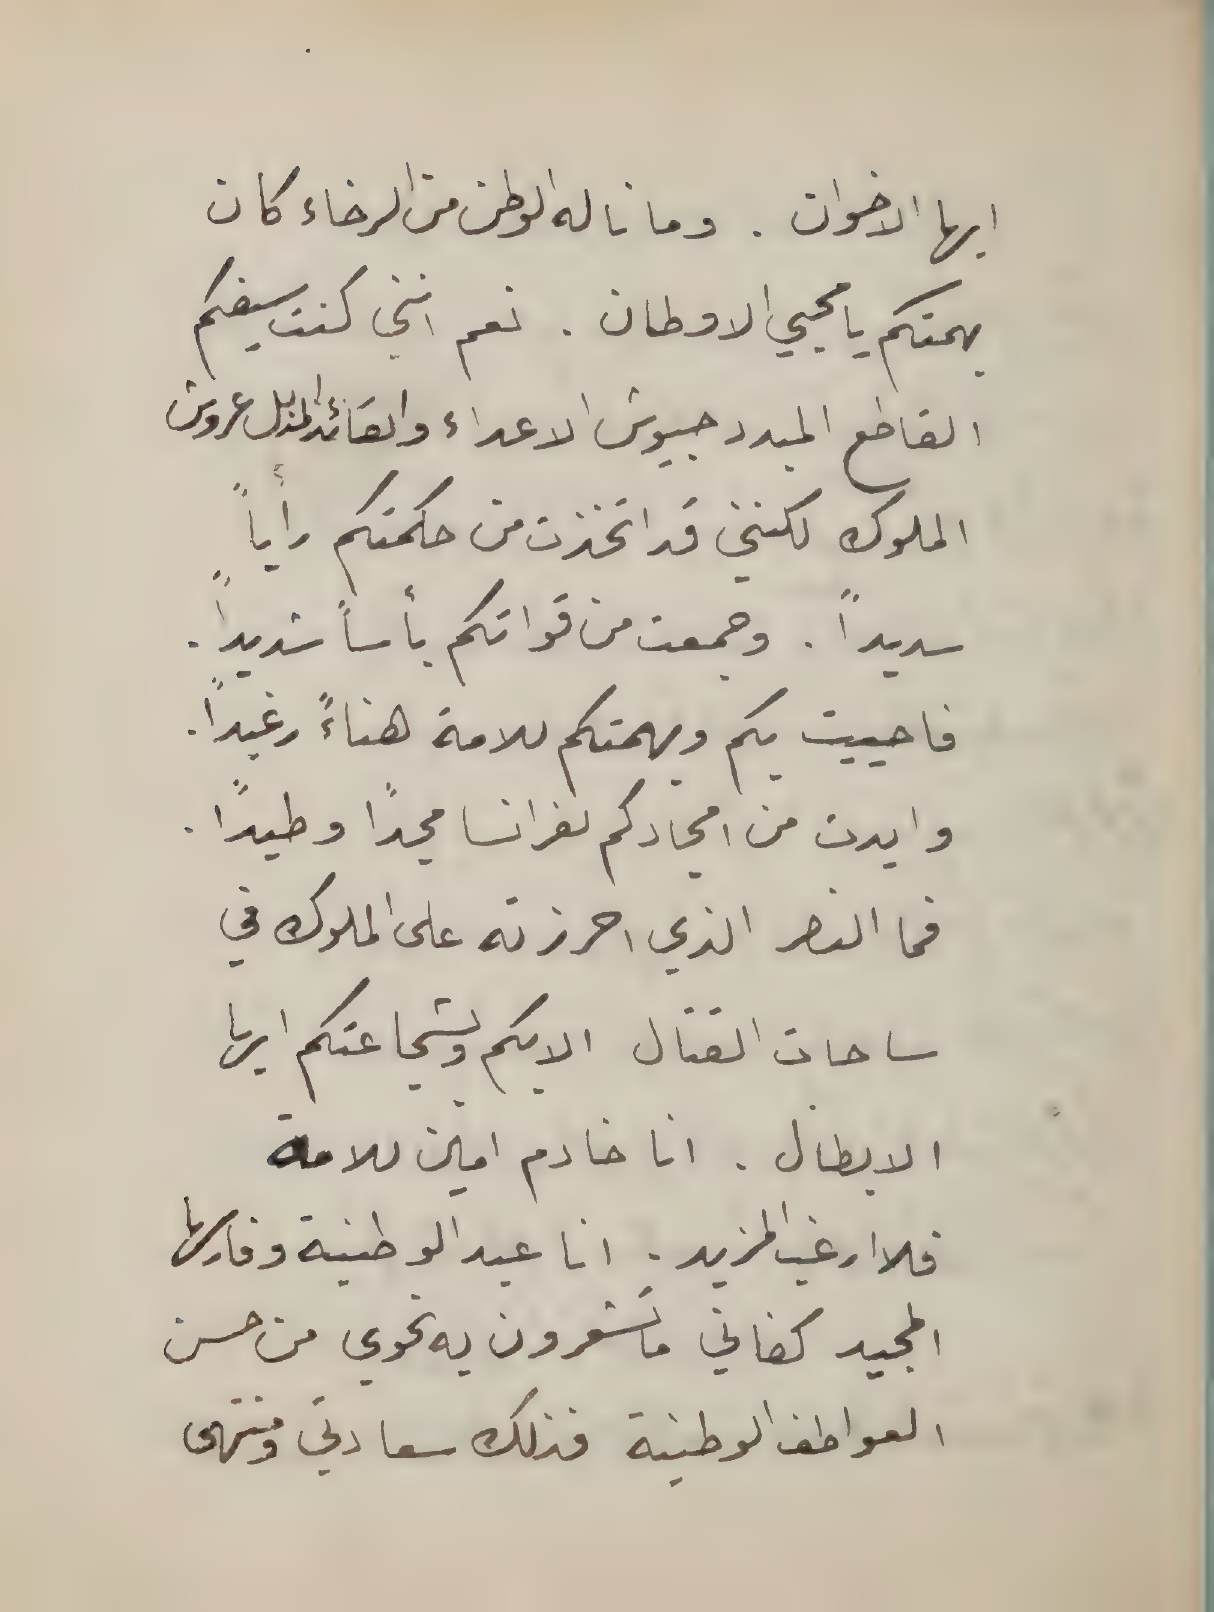 ايها الاخوان . وما ناله الوطن من الرخاء كان
بهمتكم يا محيي الاوطان . نعم انني كنت سيفكم
القاطع المبدد جيوش الاعداء والقائد المذلل عروش
الملوك لكنني قد اتخذت من حكمتكم رأياً
سديداً . وجمعت من قواتكم بأساً شديداً .
فاحييت بكم وبهمتكم للامة هناءً رغيداً .
وايدت من امجادكم لفرانسا مجداً وطيداً .
فما النصر الذي احرزته على الملوك في
ساحات القتال الا بكم وبشجاعتكم ايها
الابطال . انا خادم امين للامة
فلا ارغب المزيد . انا عبد الوطنية وفارسها
المجيد كفاني ما تشعرون به نحوي من حسن
العواطف الوطنية فذلك سعادتي ومنتهى